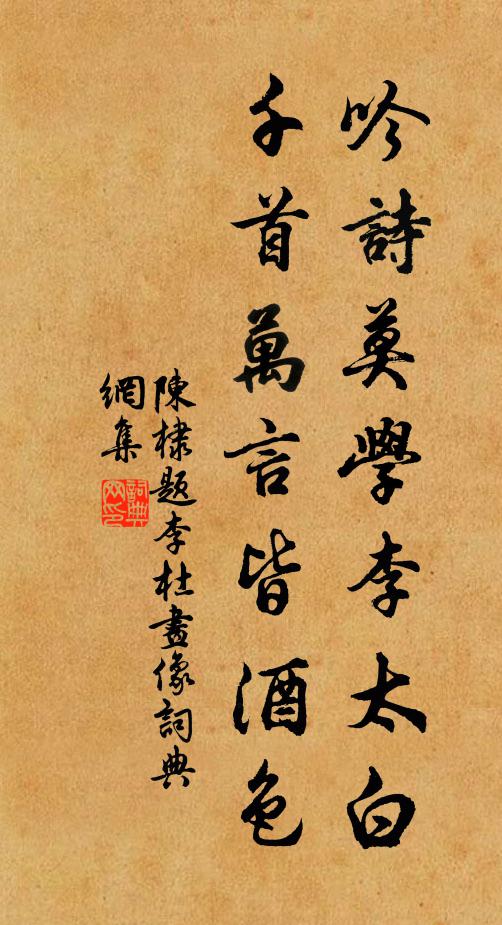 吟詩莫學李太白
千首萬言皆酒色
陳棣題李杜畫像詞典
網集
詞典
网印